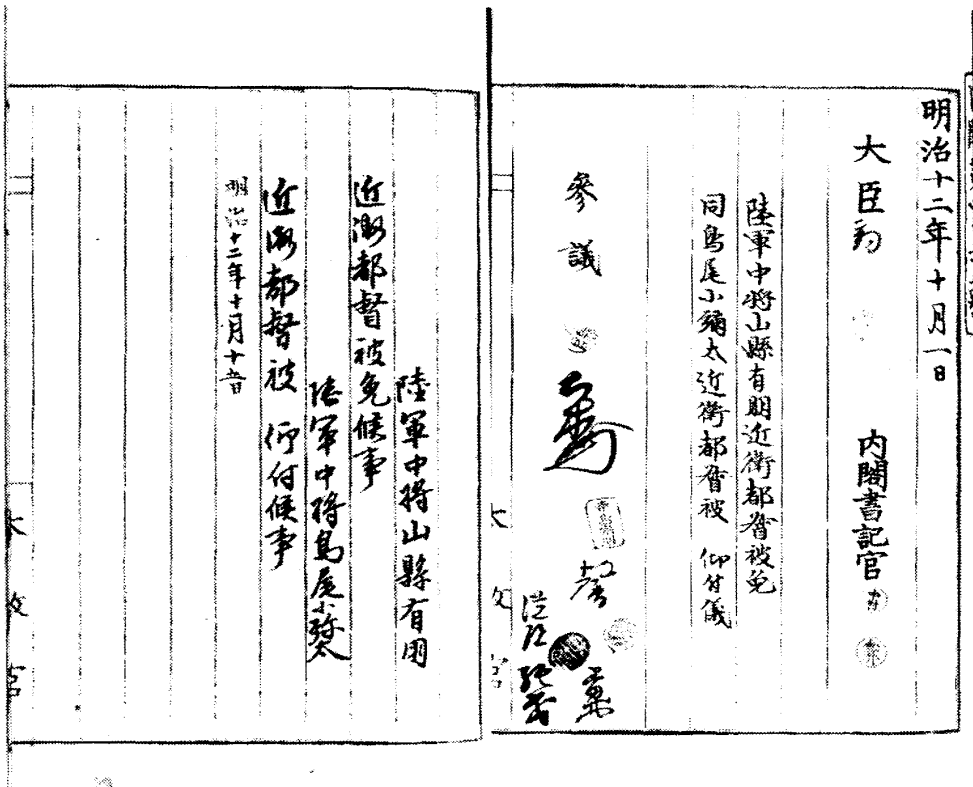 明治十二年十月一日
大臣
内閣書記官
陸軍中將山縣有朋近衛都督被免
同鳥尾小彌太近衛都督被 仰付儀
參議
陸軍中將山縣有朋
近衛都督被免候事
陸軍中將鳥尾小弥太
近衛都督被 仰付候事
明治十二年十月十五日
太政官